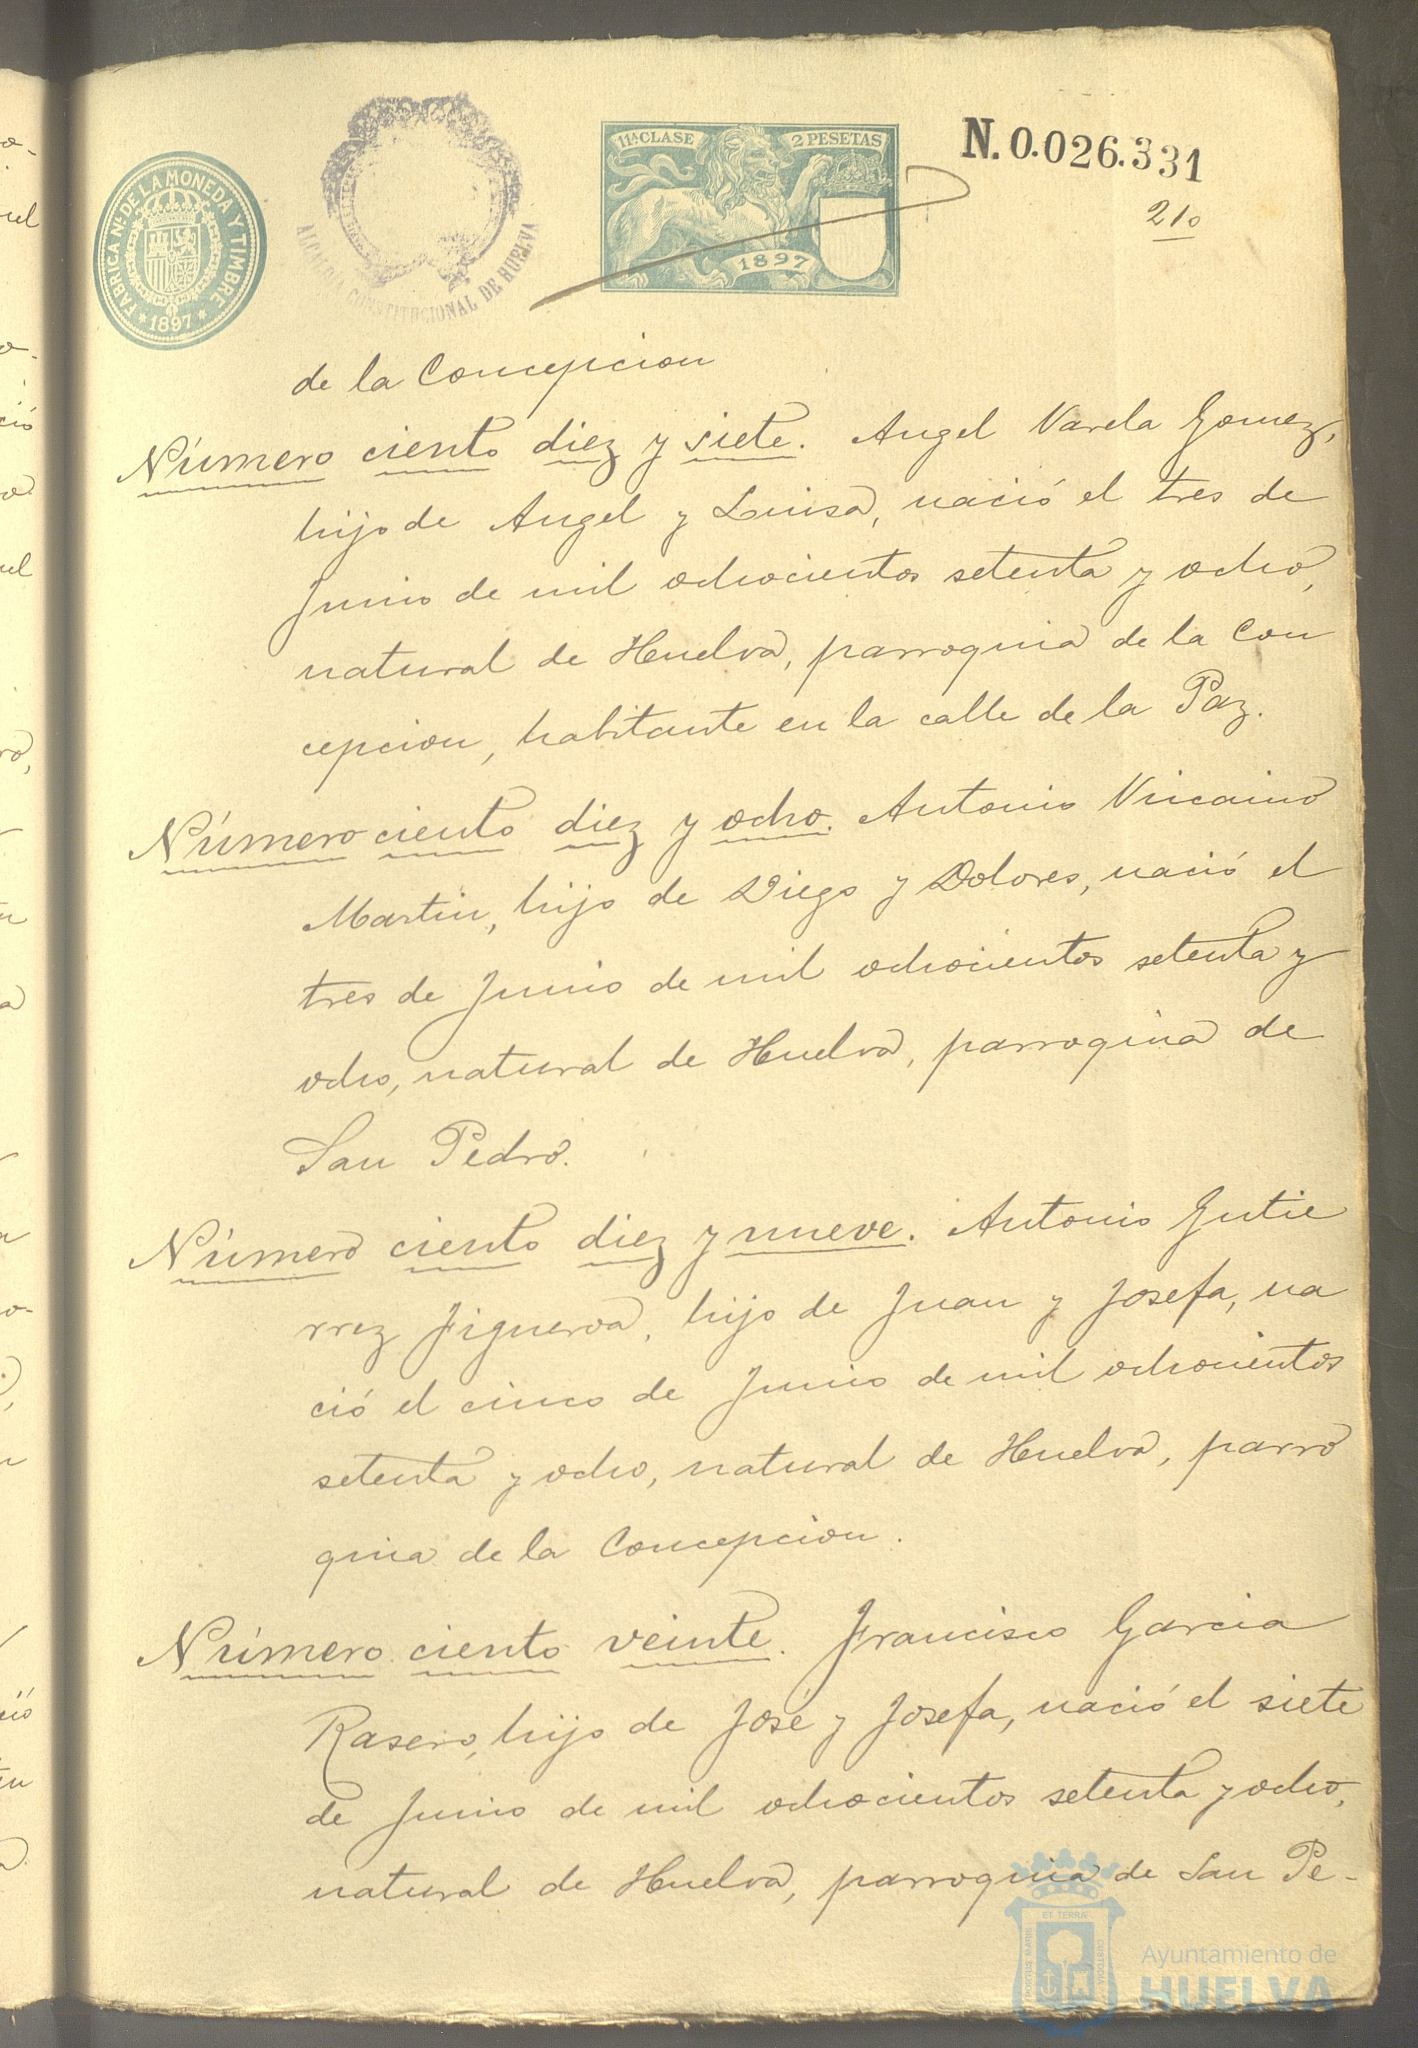 FABRICA NL. DE LA MONEDA Y TIMBRE
* 1897 *
ALCALDIA CONSTITUCIONAL DE HUELVA
11ª CLASE 2 PESETAS
1897
N.0.026.331
210
de la Concepcion
Número ciento diez y siete. Angel Varela Gomez,
hijo de Angel y Luisa, nació el tres de
Junio de mil ochocientos setenta y ocho,
natural de Huelva, parroquia de la Con
cepcion, habitante en la calle de la Paz.
Número ciento diez y ocho. Antonio Vizcaino
Martin, hijo de Diego y Dolores, nació el
tres de Junio de mil ochocientos setenta y
ocho, natural de Huelva, parroquia de
San Pedro.
Número ciento diez y nueve. Antonio Gutie
rrez Figueroa, hijo de Juan y Josefa, na
ció el cinco de Junio de mil ochocientos
setenta y ocho, natural de Huelva, parro
quia de la Concepcion.
Número ciento veinte. Francisco Garcia
Rasero, hijo de José y Josefa, nació el siete
de Junio de mil ochocientos setenta y ocho,
natural de Huelva, parroquia de San Pe-
ET TERRA
CUSTODIA
Ayuntamiento de
HUELVA